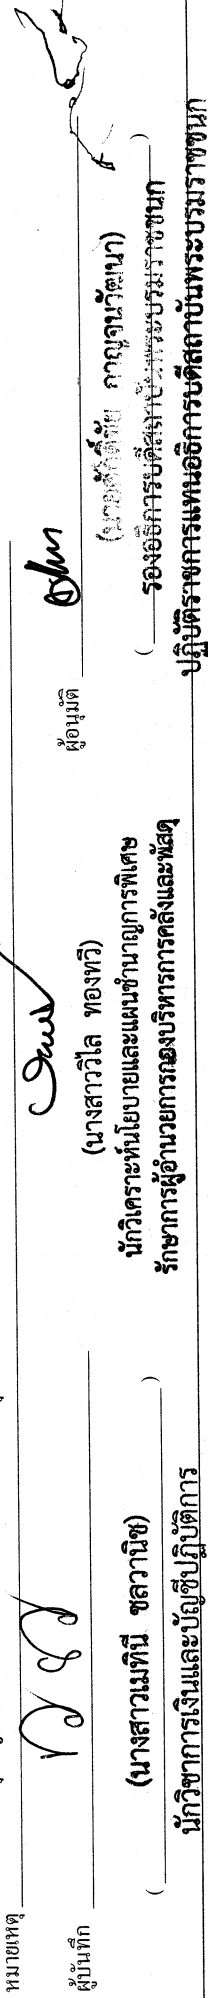 หมายเหตุ
ผู้บันทึก
(นางสาวเมทินี ชลวานิช)
นักวิชาการเงินและบัญชีปฏิบัติการ
(นางสาววิไล ทองทวี)
นักวิเคราะห์นโยบายและแผนชำนาญการพิเศษ
รักษาการผู้อำนวยการกองบริหารการคลังและพัสดุ
ผู้อนุมัติ
(นายศักดิ์ชัย กาญจนวัฒนา)
รองอธิการบดีสถาบันพระบรมราชชนก
ปฏิบัติราชการแทนอธิการบดีสถาบันพระบรมราชชนก